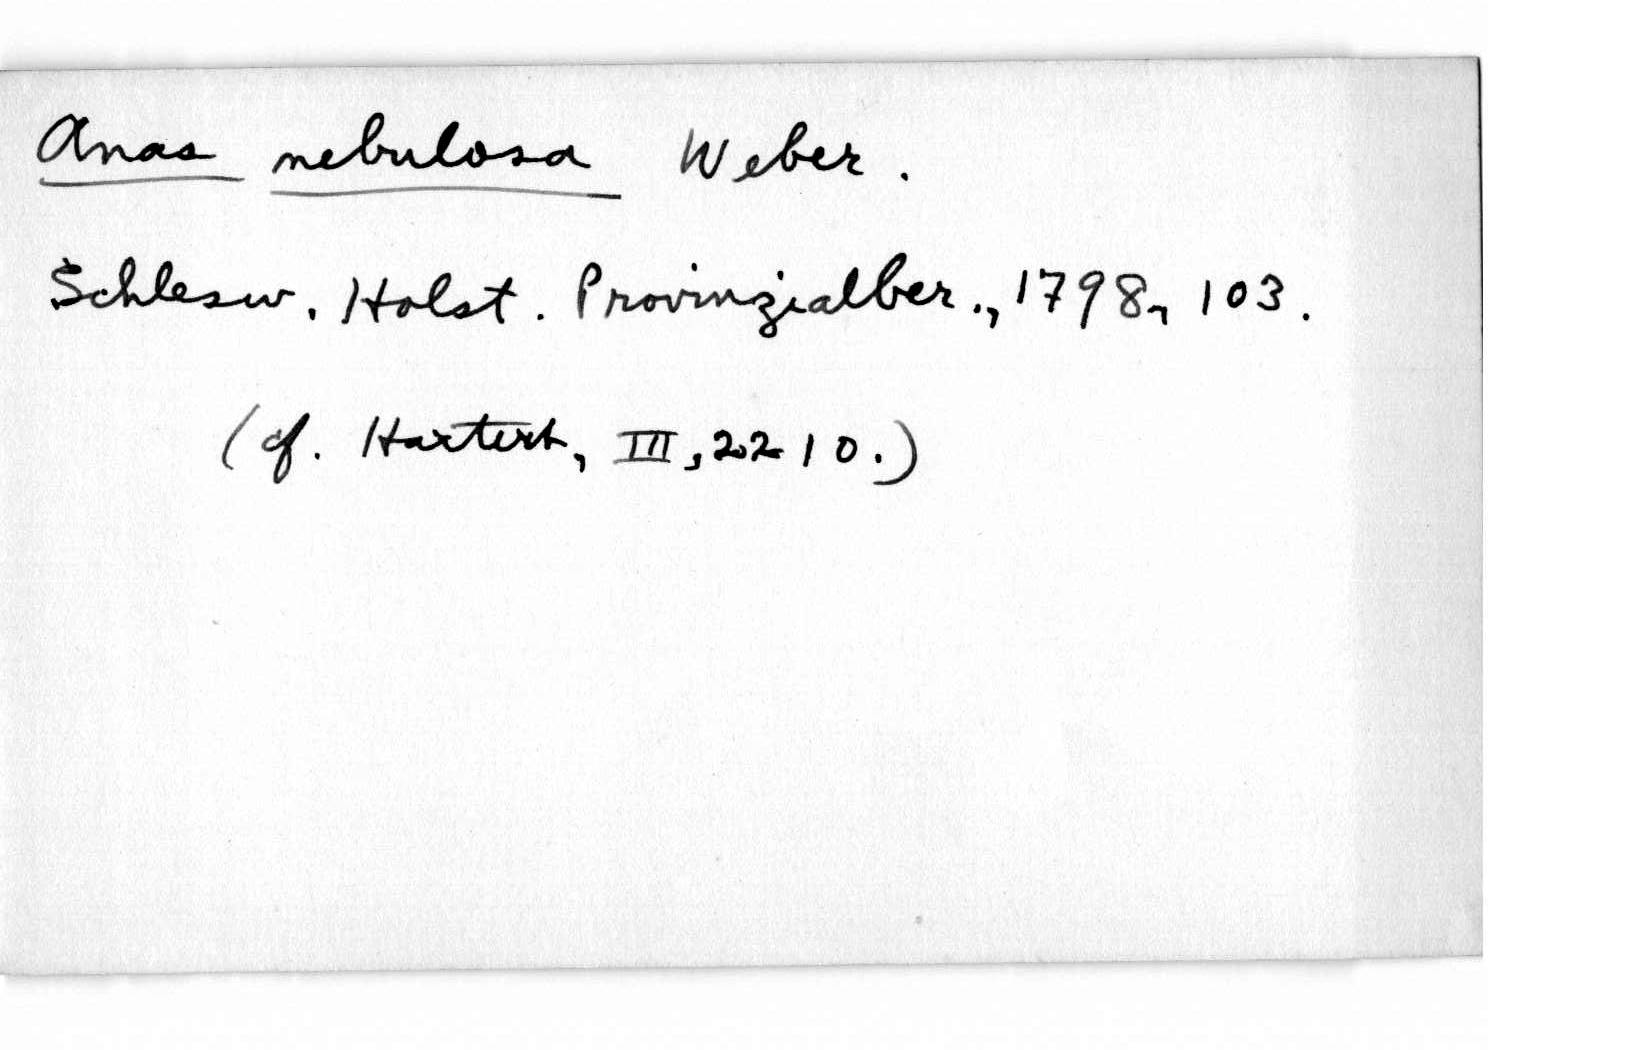 Anas nebulosa Weber.
Schlesw. Holst. Provinzialber., 1798, 103.
(cf. Hartert, III, 2210.)